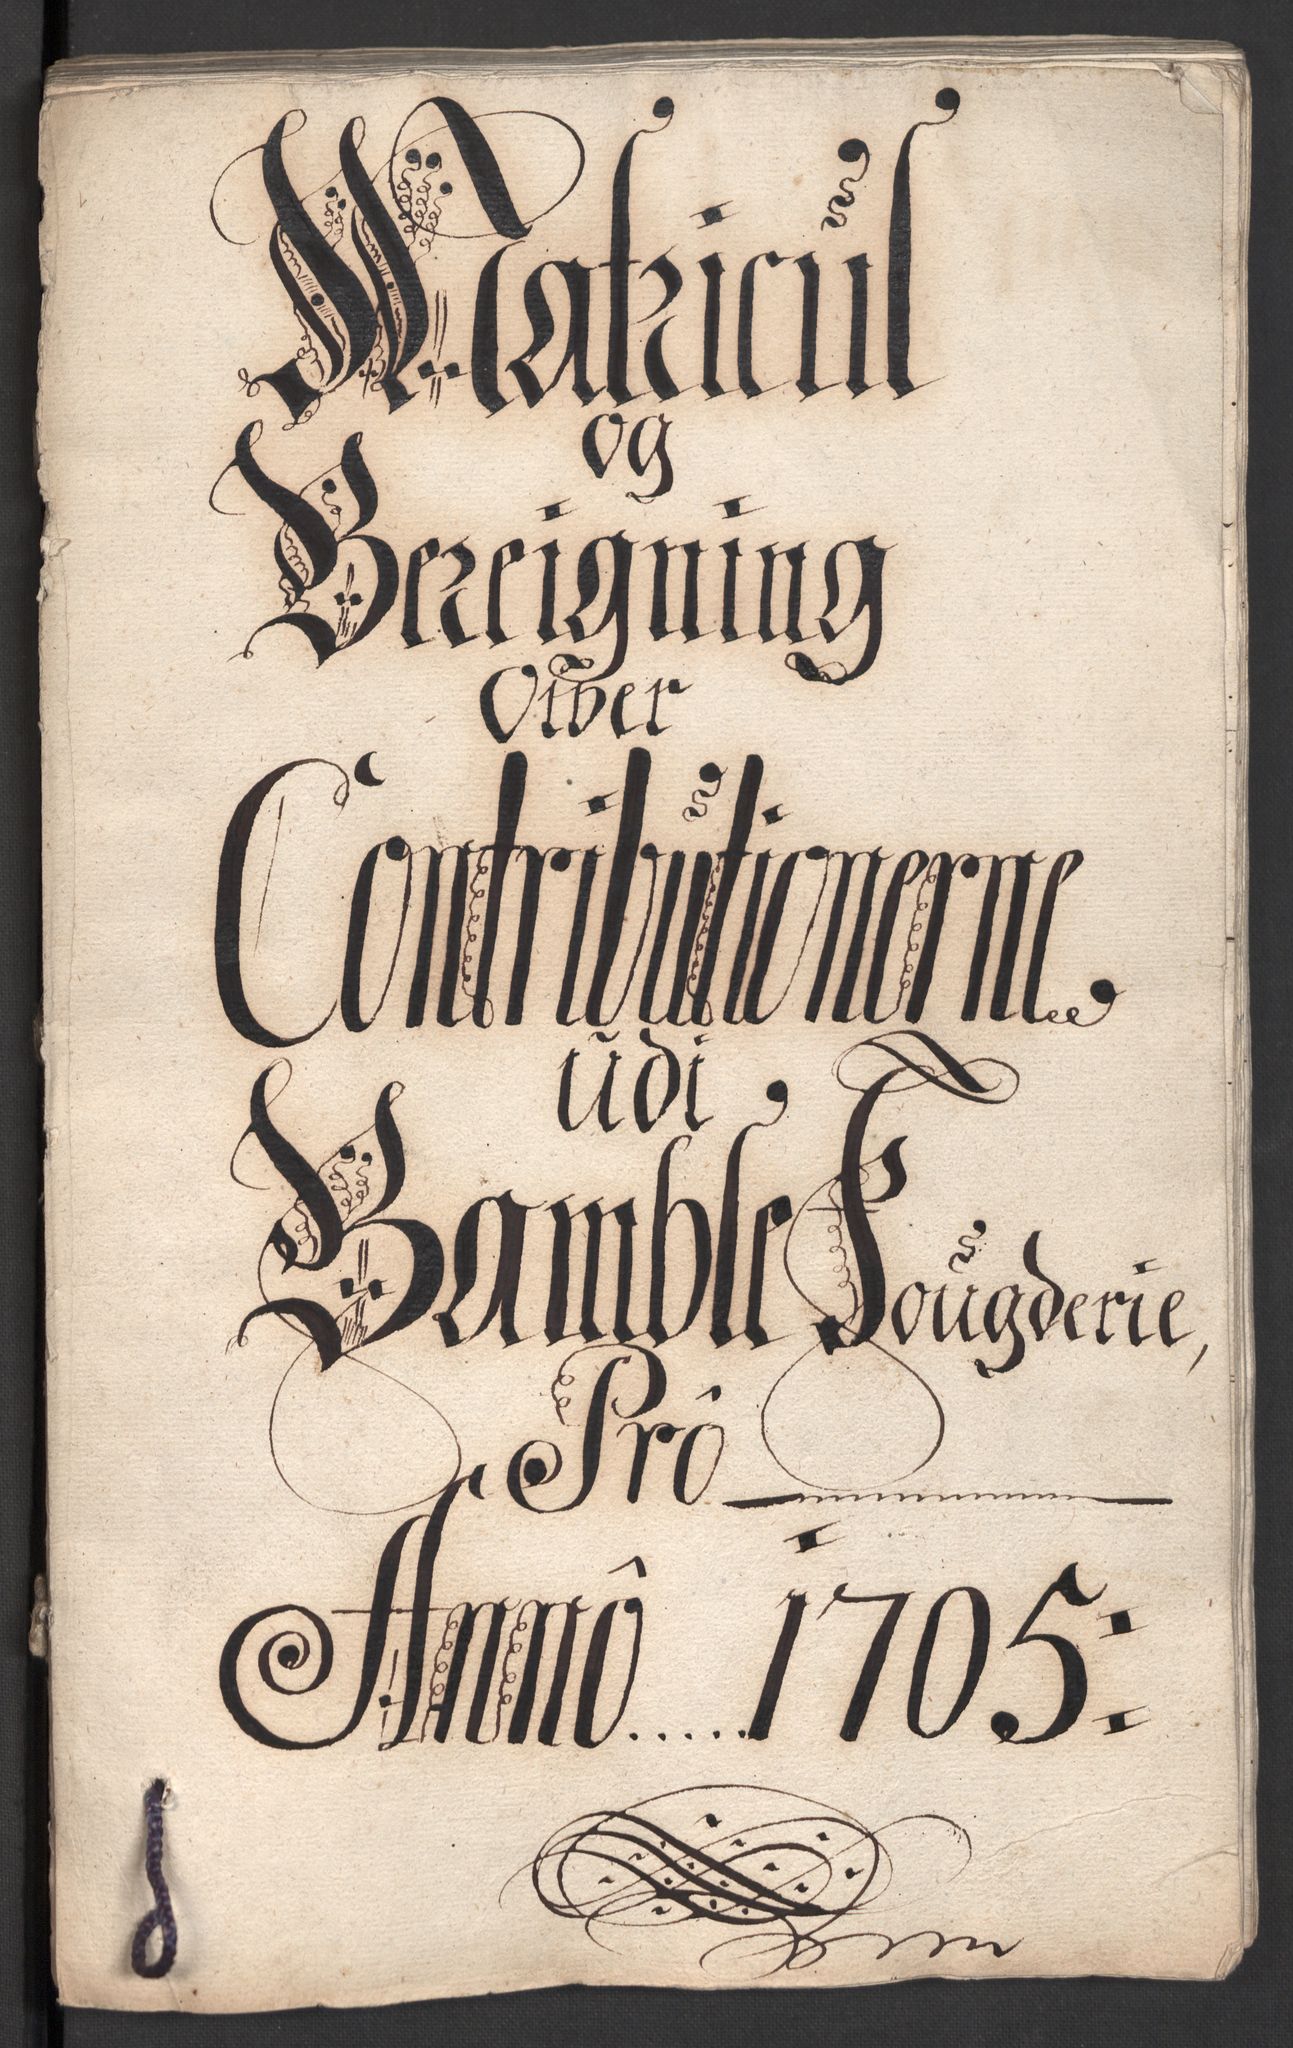 Matricul
og
Bereigning
Ofver
Contributionerne
udi
Bamble Fougderie,
Pro
Anno ..... 1705: